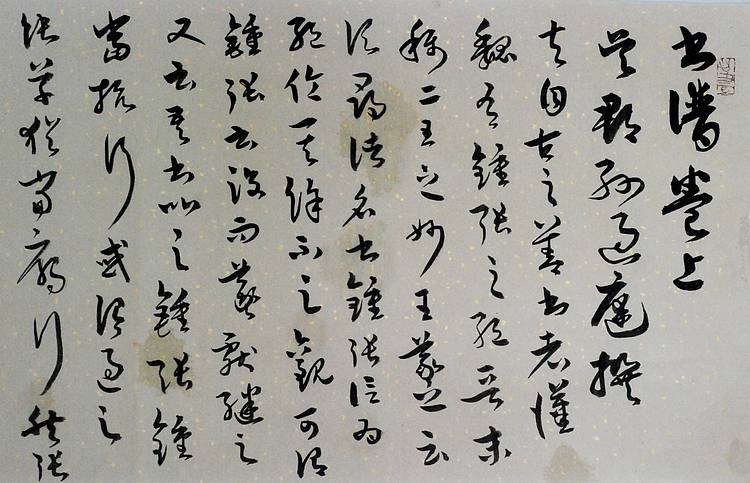 書譜卷上
吳郡孫過庭撰
夫自古之善書者漢
魏有鍾張之絕晉末
稱二王之妙王羲之云
頃尋諸名書鍾張信為
絕倫其餘不足觀可謂
鍾張云沒而羲獻繼之
又云吾書比之鍾張鍾
當抗行或謂過之
張草猶當雁行然張